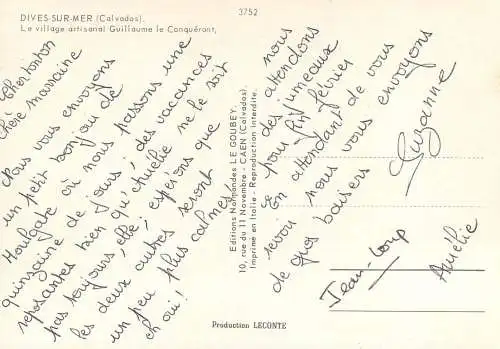 DIVES-SUR-MER (Calvados).
Le village artisanal Guillaume le Conquéront,
3752
Cher tonton
Chère marraine
Nous vous envoyons
un petit bonjour de
Houlgate où nous passons une
quinzaine de jours, des vacances
reposantes bien qu'Amélie ne le soit
pas toujours, elle! espérons que
les deux autres seront
un peu plus calmes,
eh oui!
nous
attendons
des jumeaux
pour fin février
En attendant de vous
revoir nous vous envoyons
de gros baisers
Suzanne
Jean-Loup
Amélie
Editions Normandes LE GOUBEY.
10, rue du 11 Novembre - CAEN (Calvados).
Imprimé en Italie - Reproduction interdite.
Production LECONTE